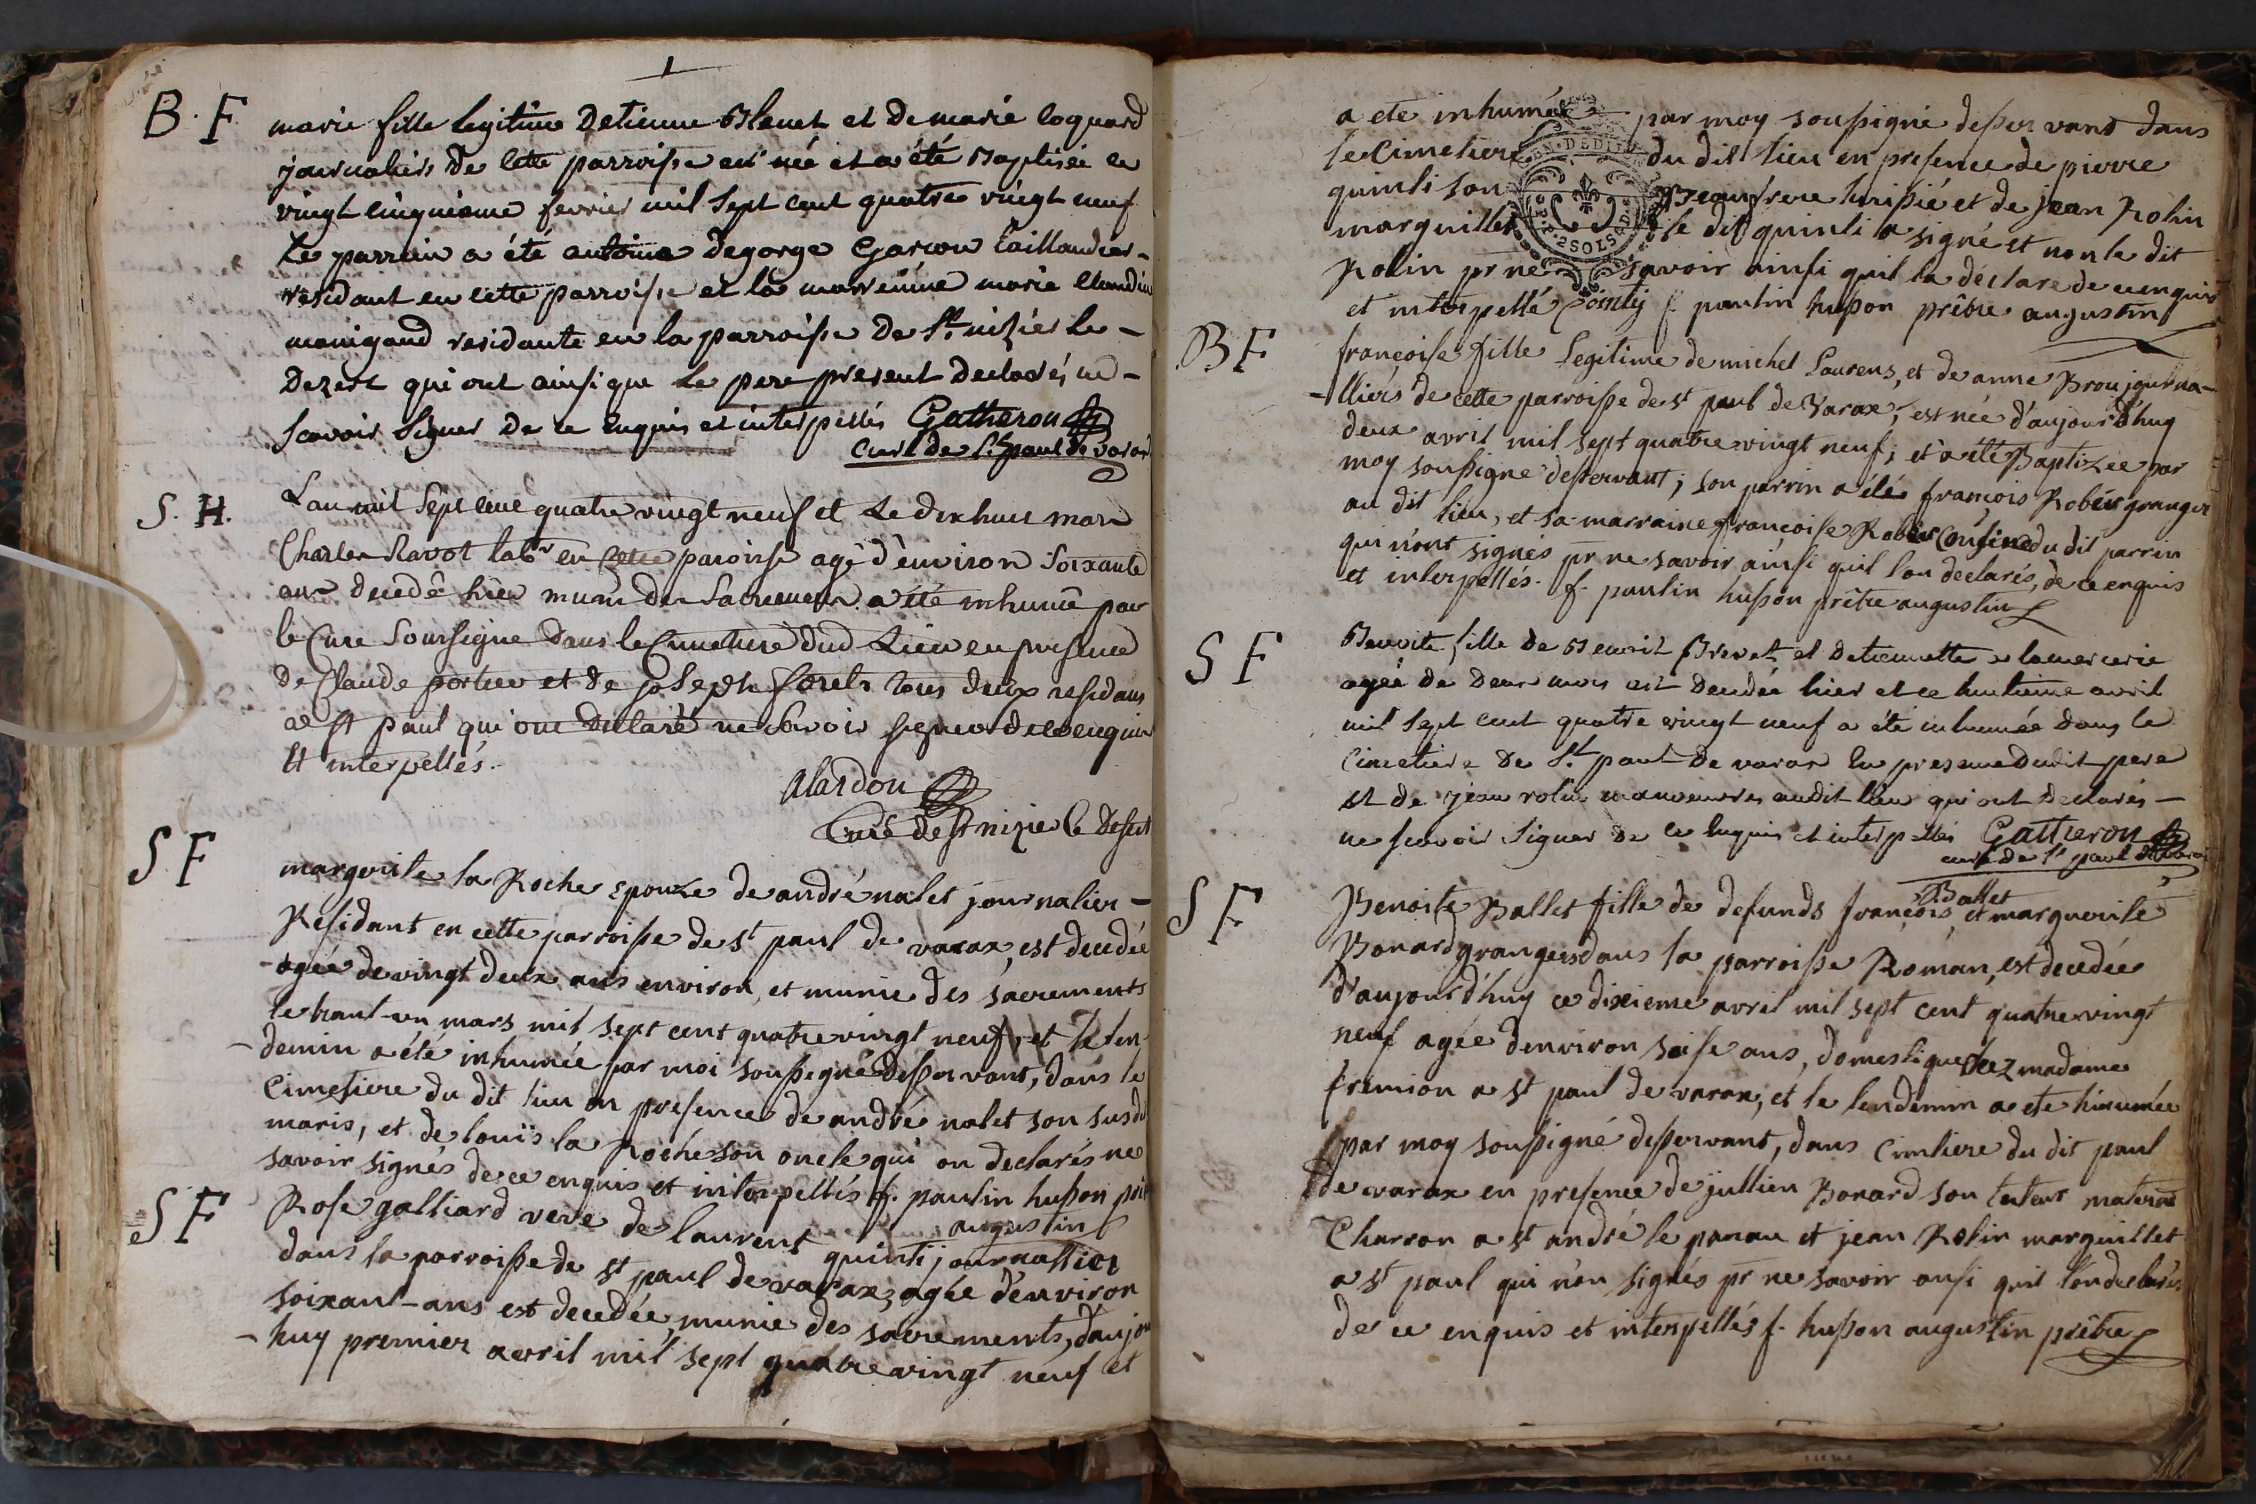 1
B. F
marie fille legitime detienne Blanet et de marie coquard
journaliers de cette parroisse est née et a été Baptisée le
vingt cinquieme fevrier mil sept cent quatre vingt neuf
Le parrain a été antoine degorge Garcon taillandier -
residant en cette parroisse et la marreinne marie claudine
monigand residante en la parroisse de St nizier le -
Dezert qui ont ainsi que le pere present declarés ne -
scavoir signer de ce enquis et interpellés Gatheron
curé de St paul de varax
S. H.
Lan mil sept cent quatre vingt neuf et le dix huit mars
Charles Ravot labr en cette paroisse agé d'environ soixante
ans decedé hier muni des Sacremens a été inhumé par
le Curé soussigné dans le Cimetiere dud Lieu en presence
de Claude portier et de joseph foret tous deux residans
a St paul qui ont declaré ne Savoir signer de ce enquis
et interpellés.
Mardon
Curé de St nizier le Desert
S F
marguerite la Roche epouze de andré nalet journalier -
Residant en cette parroisse de st paul de varax, est decedée
- agée de vingt deux ans environ, et munie des sacrements
le trant-un mars mil sept cent quatre vingt neuf, et le len
- demin a été inhumée par moi soussigné desservant, dans le
cimetiere du dit lieu en presence de andré nalet son susdit
maris, et de louïs la Roche son oncle qui on declarés ne
savoir signés de ce enquis et interpellés f. paulin husson
augustin
S F
Rose galliard veve de laurent quinti journallier
dans la parroisse de st paul de varax, agée d'environ
soixant-ans est decedée, munie des sacrements, d'aujour
- huy premier avril mil sept quatre vingt neuf et
a ete inhumée par moy soussigné desservant dans
le Cimetiere du dit lieu en presence de pierre
quinti son Beaufrere et de jean Rolin
marguillet le dit quinti a signé et non le dit
Rolin pr ne savoir ainsi quil la déclare de ce enquis
et interpellé f. paulin husson prêtre augustin
EN. DEDIT
2 SOLS
B F
françoise fille legitime de michel Laurens, et de anne Brou journa-
- lliérs de cette parroisse de st paul de Varax, est née d'aujourd'huy
deux avril mil sept quatre vingt neuf; et a été Baptizée par
moy soussigné desservant; son parrin a été françois Robin granger
au dit lieu, et sa marraine françoise Robin Cousine du dit parrin
qui n'ont signés pr ne savoir ainsi quil lon declarés, de ce enquis
et interpellés. f. paulin husson prêtre augustin
S F
Benoite fille de Benoit Brevet et detiennette lamercerie
agée de deux mois est decedée hier et ce huitieme avril
mil sept cent quatre vingt neuf a été inhumée dans le
cimetiere de St paul de varax en presence dudit pere
et de jean rolin manoeuvres audit lieu qui ont declarés -
ne scavoir signer de ce enquis et interpellés Gatheron
curé de St paul de varax
S F
Ballet
Benoite Ballet fille de defunds françois, et marguerite
Bonard grangers dans la parroisse Román, est decedée
d'aujourd'huy ce dixieme avril mil sept cent quatre vingt
neuf agée denviron saise ans, domestique chez madame
fremion a st paul de varax, et le lendemin a ete hinumée
par moy soussigné desservant, dans cimtiere du dit paul
de varax en presence de jullien Bonard son tuteur maternel
Charron a st andré le panau et jean Rolin marguillet
a st paul qui n'on signés pr ne savoir ansi quil l'on declarés
de ce enquis et interpellés f. husson augustin prêtre